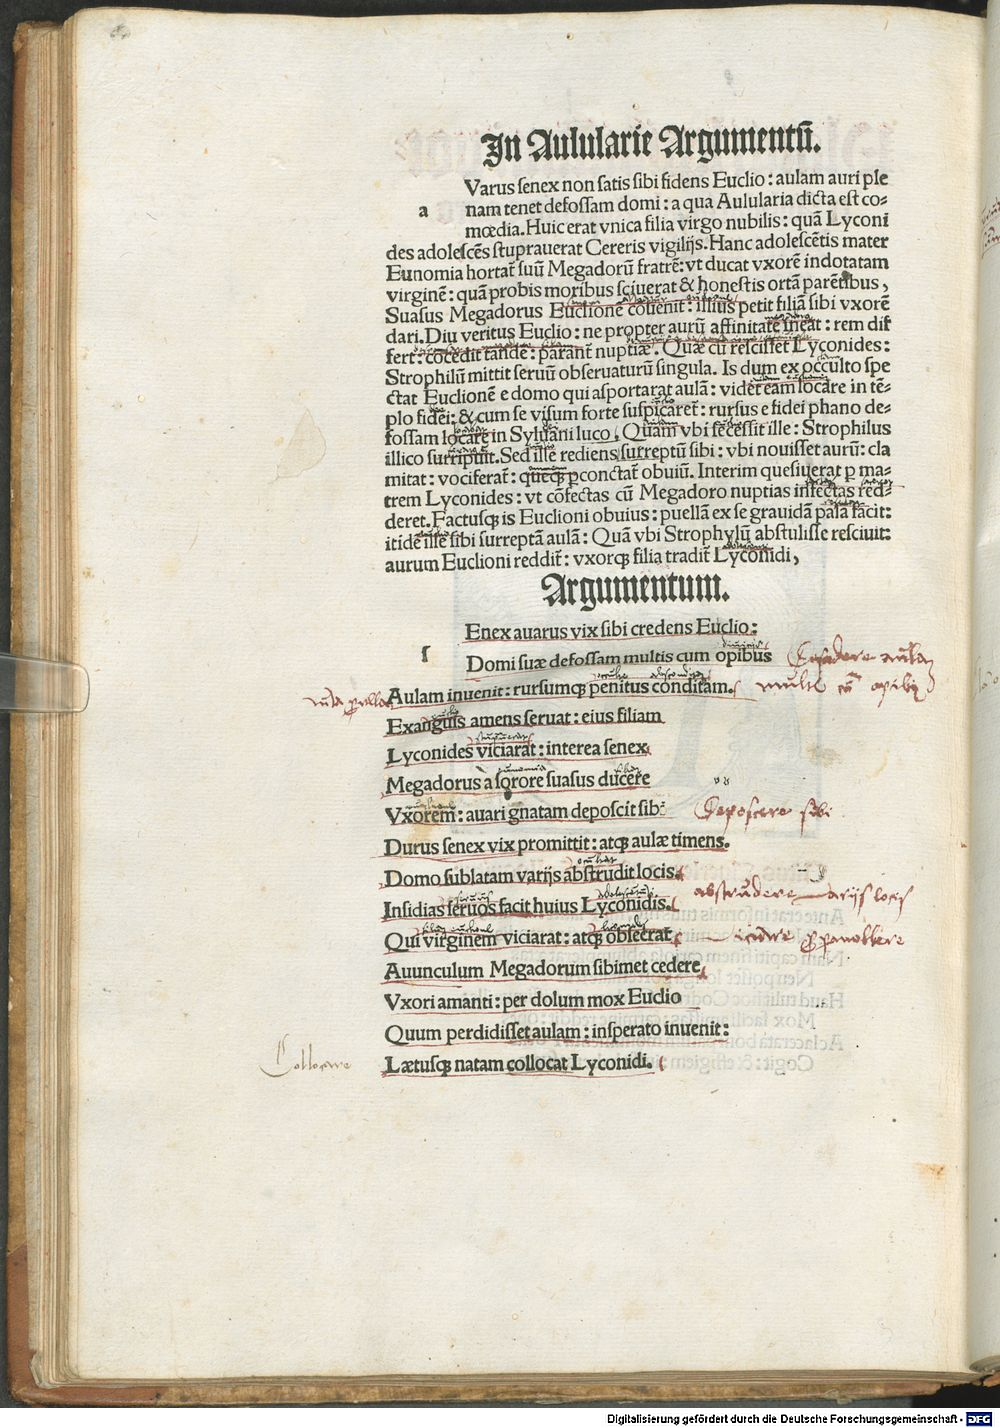 In Aulularie Argumentū.
Varus senex non satis sibi fidens Euclio: aulam auri ple
a
nam tenet defossam domi: a qua Aulularia dicta est co-
mœdia. Huic erat vnica filia virgo nubilis: quā Lyconi
des adolescēs stuprauerat Cereris vigilijs. Hanc adolescētis mater
Eunomia hortat̄ suū Megadorū fratrē: vt ducat vxorē indotatam
virginē: quā probis moribus sciuerat & honestis ortā parētibus,
Suasus Megadorus Euclionē cōuenit: illius petit filiā sibi vxorē
dari. Diu veritus Euclio: ne propter aurū affinitatē ineat: rem dif
fert: cōcedit tandē: parant̄ nuptiæ. Quæ cū rescisset Lyconides:
Strophilū mittit seruū obseruaturū singula. Is dum ex occulto spe
ctat Euclionē e domo qui asportarat aulā: videt eam locare in tē-
plo fidei: & cum se visum forte suspicaret̄: rursus e fidei phano de-
fossam locare in Syluani luco. Quam vbi secessit ille: Strophilus
illico surripuit. Sed ille rediens surreptū sibi: vbi nouisset aurū: cla
mitat: vociferat̄: quēqꝫ ꝑconctat̄ obuiū. Interim quesiuerat ꝑ ma-
trem Lyconides: vt cōfectas cū Megadoro nuptias infectas red-
deret. Factusqꝫ is Euclioni obuius: puellā ex se grauidā palā facit:
itidē ille sibi surreptā aulā: Quā vbi Strophylū abstulisse resciuit:
aurum Euclioni reddit̄: vxorqꝫ filia tradit̄ Lyconidi,
Argumentum.
Enex auarus vix sibi credens Euclio:
s
Domi suæ defossam multis cum opibus
Aulam inuenit: rursumqꝫ penitus conditam.
multis cū opibꝫ
Exanguis amens seruat: eius filiam
Lyconides viciarat: interea senex
Megadorus à sorore suasus ducere
Vxorem: auari gnatam deposcit sibi
Deposcere sibi
Durus senex vix promittit: atqꝫ aulæ timens.
Domo sublatam varijs abstrudit locis.
abstrudere varijs locis
Insidias seruos facit huius Lyconidis.
Qui virginem viciarat: atqꝫ obsecrat
Auunculum Megadorum sibimet cedere
Vxori amanti: per dolum mox Euclio
Quum perdidisset aulam: insperato inuenit:
Lætusqꝫ natam collocat Lyconidi.
Collocare
Digitalisierung gefördert durch die Deutsche Forschungsgemeinschaft - DFG